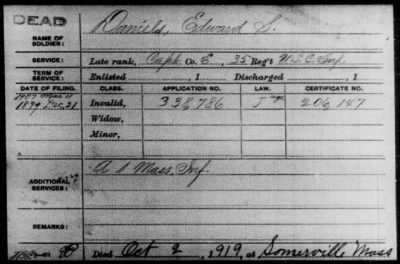 DEAD
NAME OF SOLDIER: Daniels, Edward S.
SERVICE: Late rank, Capt. Co. E, 35 Reg't U.S.C. Inf.
TERM OF SERVICE: Enlisted , 1 Discharged , 1
DATE OF FILING. CLASS. APPLICATION NO. LAW. CERTIFICATE NO.
1907 Mar 11
1879 Dec. 31 Invalid, 338,786 206,147
Widow,
Minor,
ADDITIONAL SERVICES: Mass. Inf.
REMARKS:
Died Oct 2, 1919, at Somerville Mass